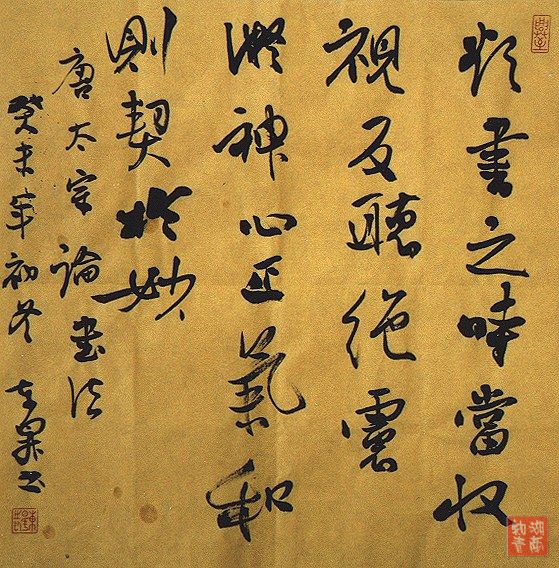 欲書之時當収
視反聽絕慮
凝神心正氣和
則契於妙
唐太宗論書法
癸未年初冬
湖南
知青